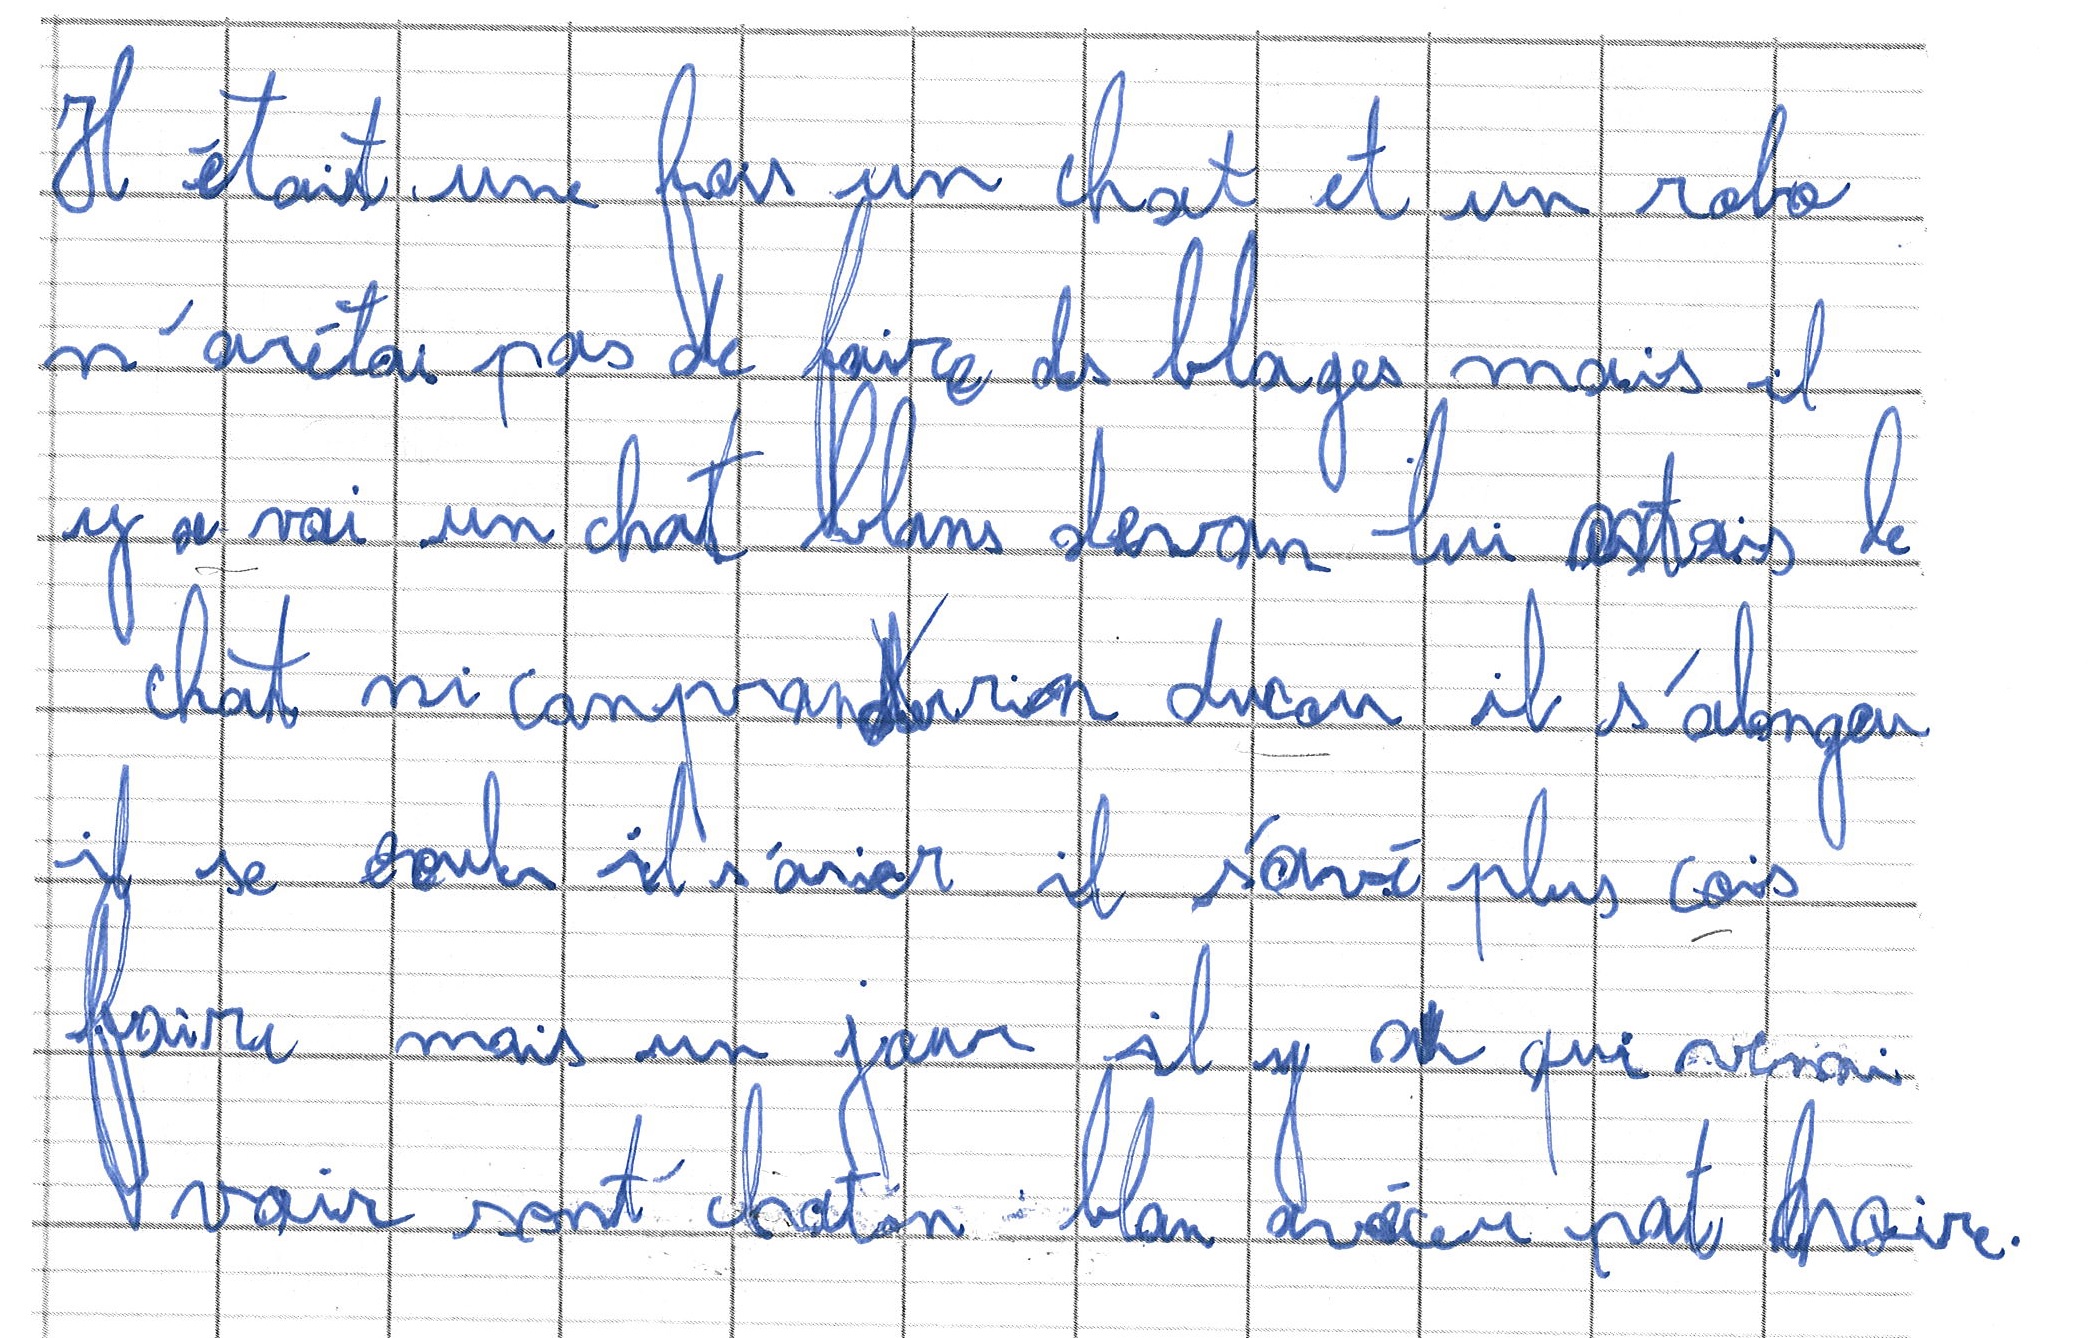 Il était une fois un chat et un robo
n'arétai pas de faire des blages mais il
y a vai un chat blans devan lui estais le
chat ni conpran rien ducou il s'alongeu
il se roule il s'asior il s'avé plus cois
faire mais un jour il y a qui venai
voir sont chatон blan avéceu pat noire.